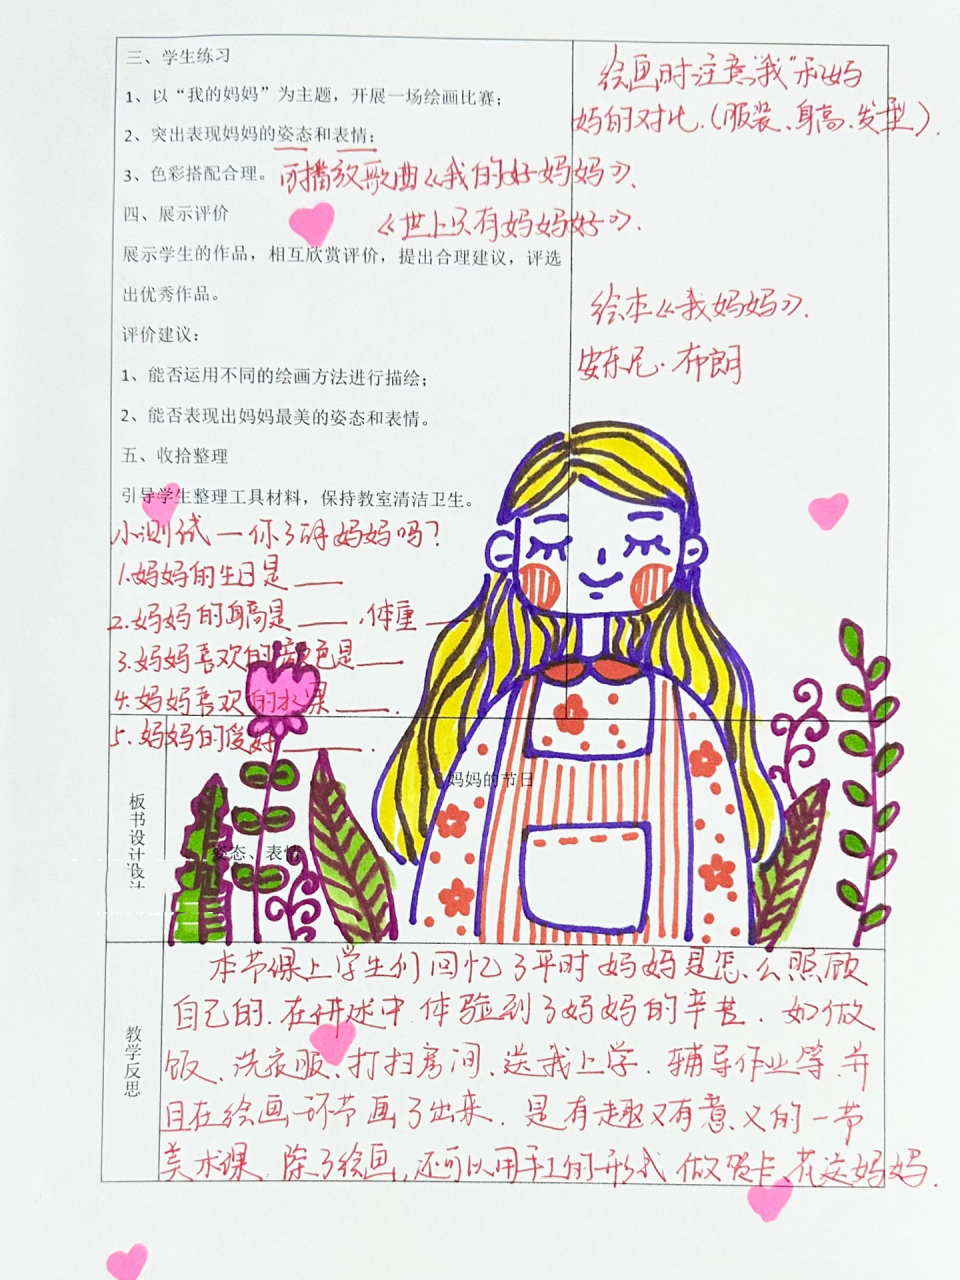 三、学生练习
1、以“我的妈妈”为主题，开展一场绘画比赛；
2、突出表现妈妈的姿态和表情；
3、色彩搭配合理。可播放歌曲《我的好妈妈》、
《世上只有妈妈好》.
四、展示评价
展示学生的作品，相互欣赏评价，提出合理建议，评选
出优秀作品。
评价建议：
1、能否运用不同的绘画方法进行描绘；
2、能否表现出妈妈最美的姿态和表情。
五、收拾整理
引导学生整理工具材料，保持教室清洁卫生。
小测试一你了解妈妈吗?
1.妈妈的生日是___
2.妈妈的身高是___，体重___
3.妈妈喜欢的颜色是___
4.妈妈喜欢的水果____.
5.妈妈的爱好_____.
绘画时注意“我”和妈
妈的对比.(服装、身高、发型).
绘本《我妈妈》.
安东尼·布朗
板书设计
设计
妈妈的节日
姿态、表情
教学反思
本节课上学生们回忆了平时妈妈是怎么照顾
自己的.在讲述中体验到了妈妈的辛苦.如做
饭、洗衣服、打扫房间、送我上学.辅导作业等.并
且在绘画环节画了出来.是有趣又有意义的一节
美术课.除了绘画,还可以用手工的形式做贺卡、花送妈妈.